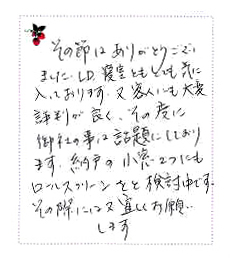 その節はありがとうござい
ました。LD、寝室ともとても気に
入っております。又客人にも大変
評判が良く、その度に
御社の事は話題にしており
ます。納戸の小窓2つにも
ロールスクリーンをと検討中です。
その際には又宜しくお願い
します